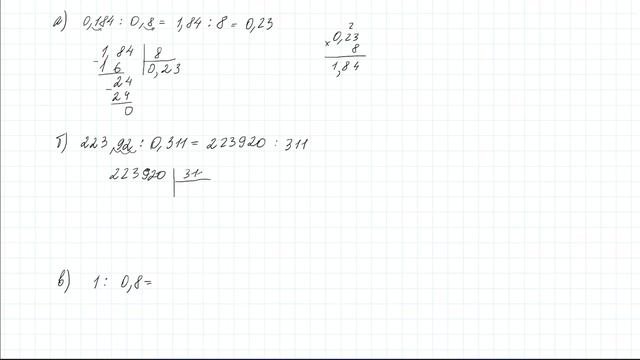 а) 0,184 : 0,8 = 1,84 : 8 = 0,23
2
× 0,23
8
1,84
- 1,84 | 8
1 6 | 0,23
- 24
24
0
б) 223,92 : 0,311 = 223920 : 311
223920 | 311
в) 1 : 0,8 =